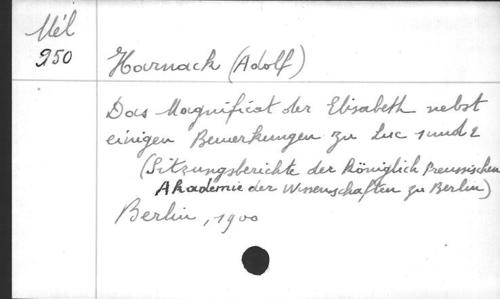 Mél
950
Harnack (Adolf)
Das Magnificat der Elisabeth nebst
einigen Bemerkungen zu Luc 1 und 2
(Sitzungsberichte der Königlich Preussischen
Akademie der Wissenschaften zu Berlin)
Berlin, 1900